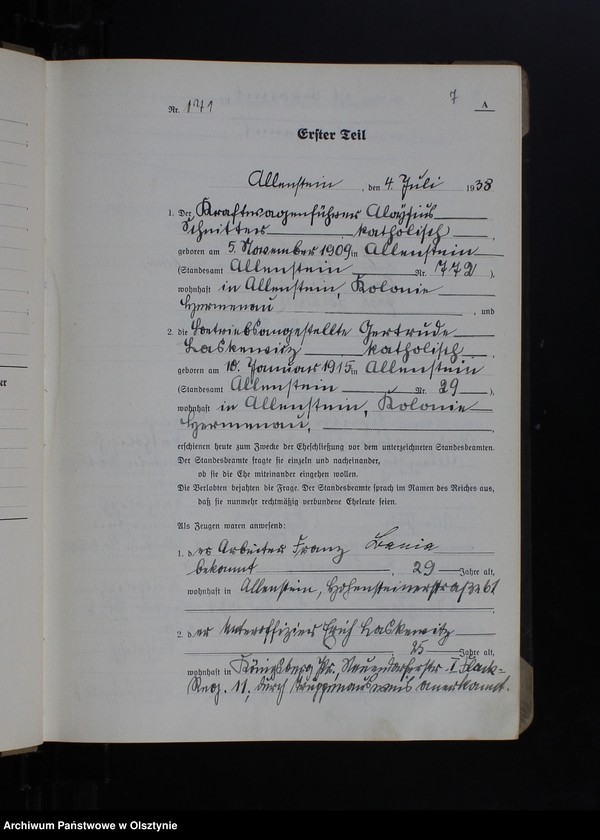 7
Nr. 141 A
Erster Teil
Allenstein, den 4. Juli 1938
1. Der Kraftwagenführer Aloysius
Schnitters katholisch,
geboren am 5. November 1909 in Allenstein
(Standesamt Allenstein Nr. 772),
wohnhaft in Allenstein, Kolonie
Hermenau, und
2. die Betriebsangestellte Gertrude
Laskewitz katholisch,
geboren am 10. Januar 1915 in Allenstein
(Standesamt Allenstein Nr. 29),
wohnhaft in Allenstein, Kolonie
Hermenau,
erschienen heute zum Zwecke der Eheschließung vor dem unterzeichneten Standesbeamten.
Der Standesbeamte fragte sie einzeln und nacheinander,
ob sie die Ehe miteinander eingehen wollen.
Die Verlobten bejahten die Frage. Der Standesbeamte sprach im Namen des Reiches aus,
daß sie nunmehr rechtmäßig verbundene Eheleute seien.
Als Zeugen waren anwesend:
1. der Arbeiter Franz
bekannt, 29 Jahre alt,
wohnhaft in Allenstein, Hohensteinerstraße 61
2. der Unteroffizier Erich Laskewitz
25 Jahre alt,
wohnhaft in Königsberg Pr., I Flack-
Reg. 11, durch Truppenausweis anerkannt.
er
Archiwum Państwowe w Olsztynie